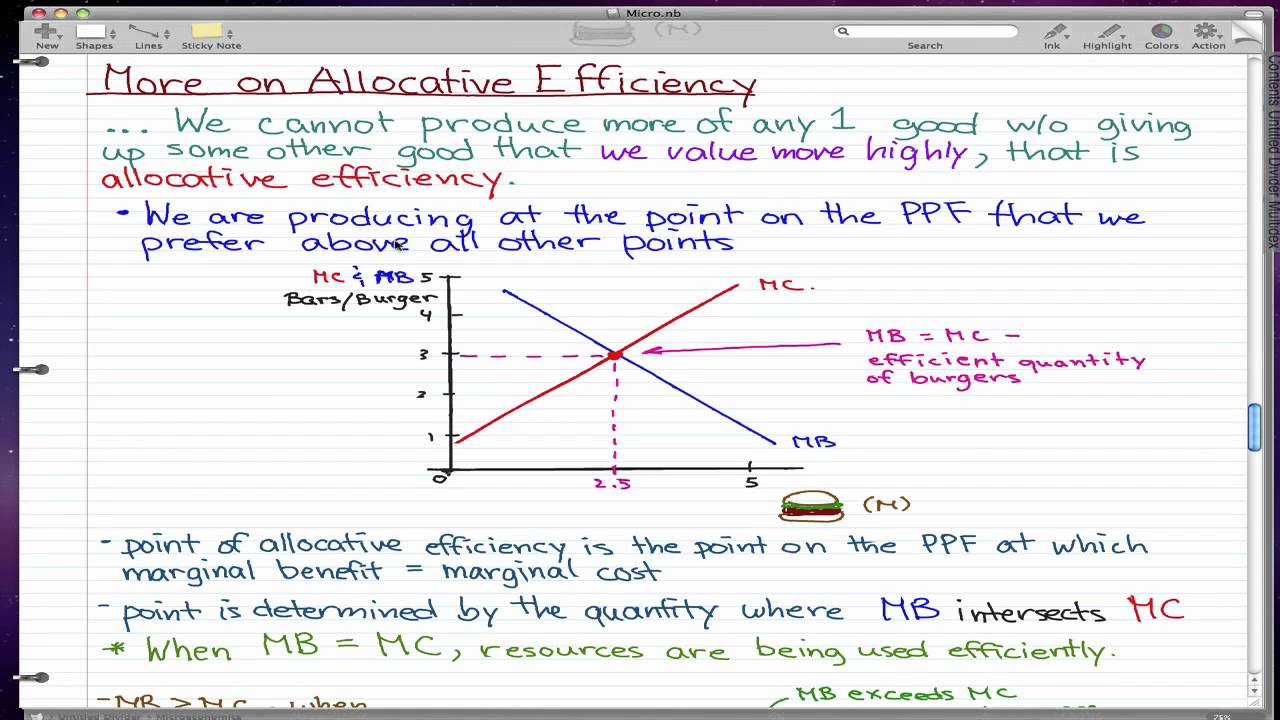 Micro.nb
New
Shapes
Lines
Sticky Note
(M)
Search
Ink
Highlight
Colors
Action
Contents
Untitled Divider
Multidex
More on Allocative Efficiency
... We cannot produce more of any 1 good w/o giving
up some other good that we value more highly, that is
allocative efficiency.
• We are producing at the point on the PPF that we
prefer above all other points
MC & MB 5
Bars/Burger
4
3
2
1
0
2.5
5
MC.
MB
MB = MC –
efficient quantity
of burgers
(M)
- point of allocative efficiency is the point on the PPF at which
marginal benefit = marginal cost
- point is determined by the quantity where MB intersects MC
* When MB = MC, resources are being used efficiently.
- MB > MC when
MB exceeds MC
Untitled Divider > Microeconomics
75%